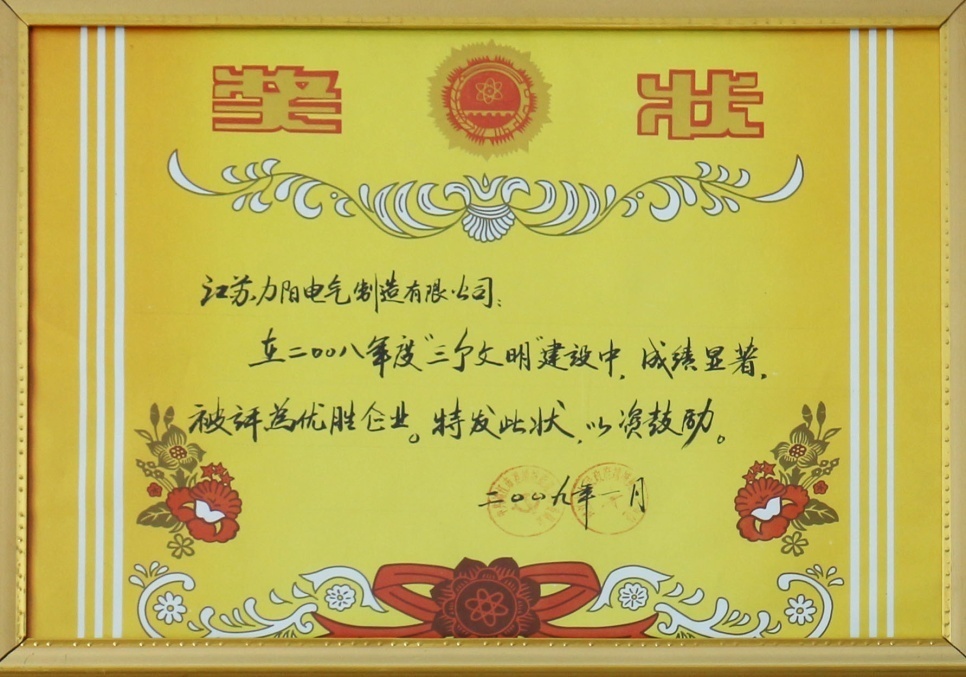 奖状
江苏力阳电气制造有限公司：
在二〇〇八年度“三个文明”建设中，成绩显著，
被评为优胜企业。特发此状，以资鼓励。
二〇〇九年一月